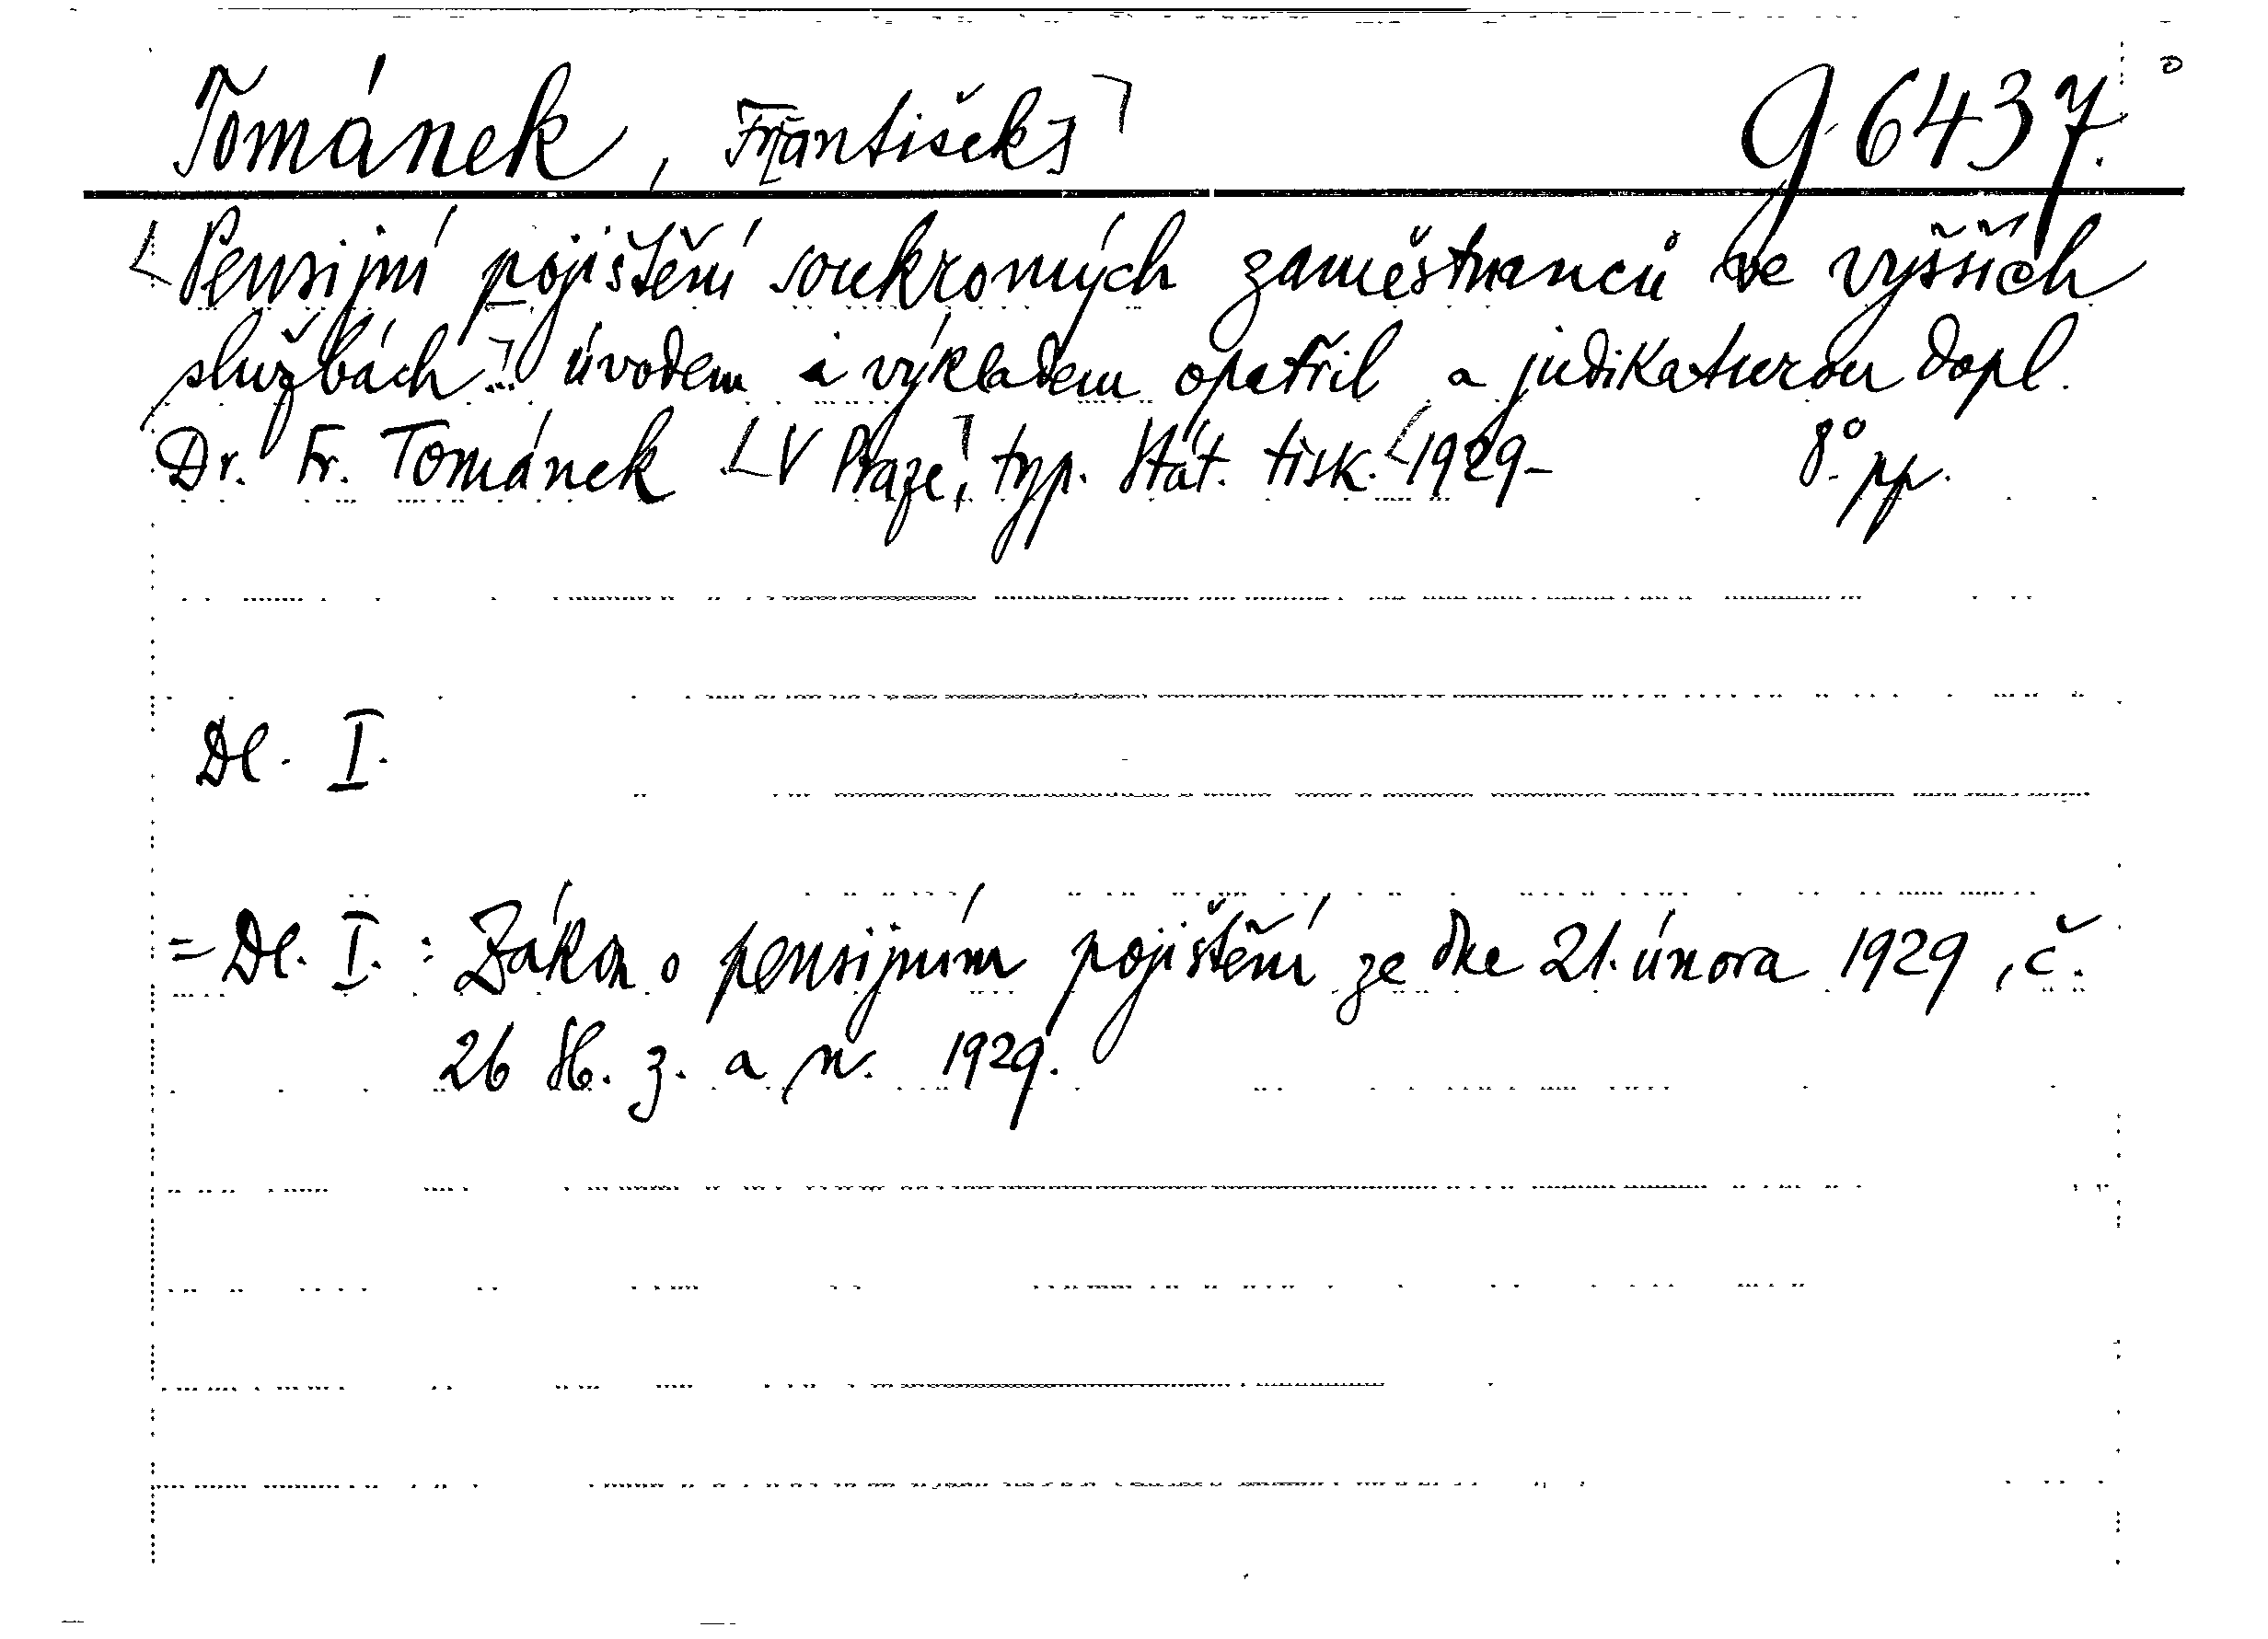 Tománek, Fr[antišek] G 6437.
Pensijní pojištění soukromých zaměstnanců ve vyšších
službách. úvodem i výkladem opatřil a judikaturou dopl.
Dr. Fr. Tománek V Praze, typ. Stát. tisk. 1929- 8° pp.
Dl. I.
= Dl. I. : Zákon o pensijním pojištění ze dne 21. února 1929, č.
26 Sb. z. a n. 1929.